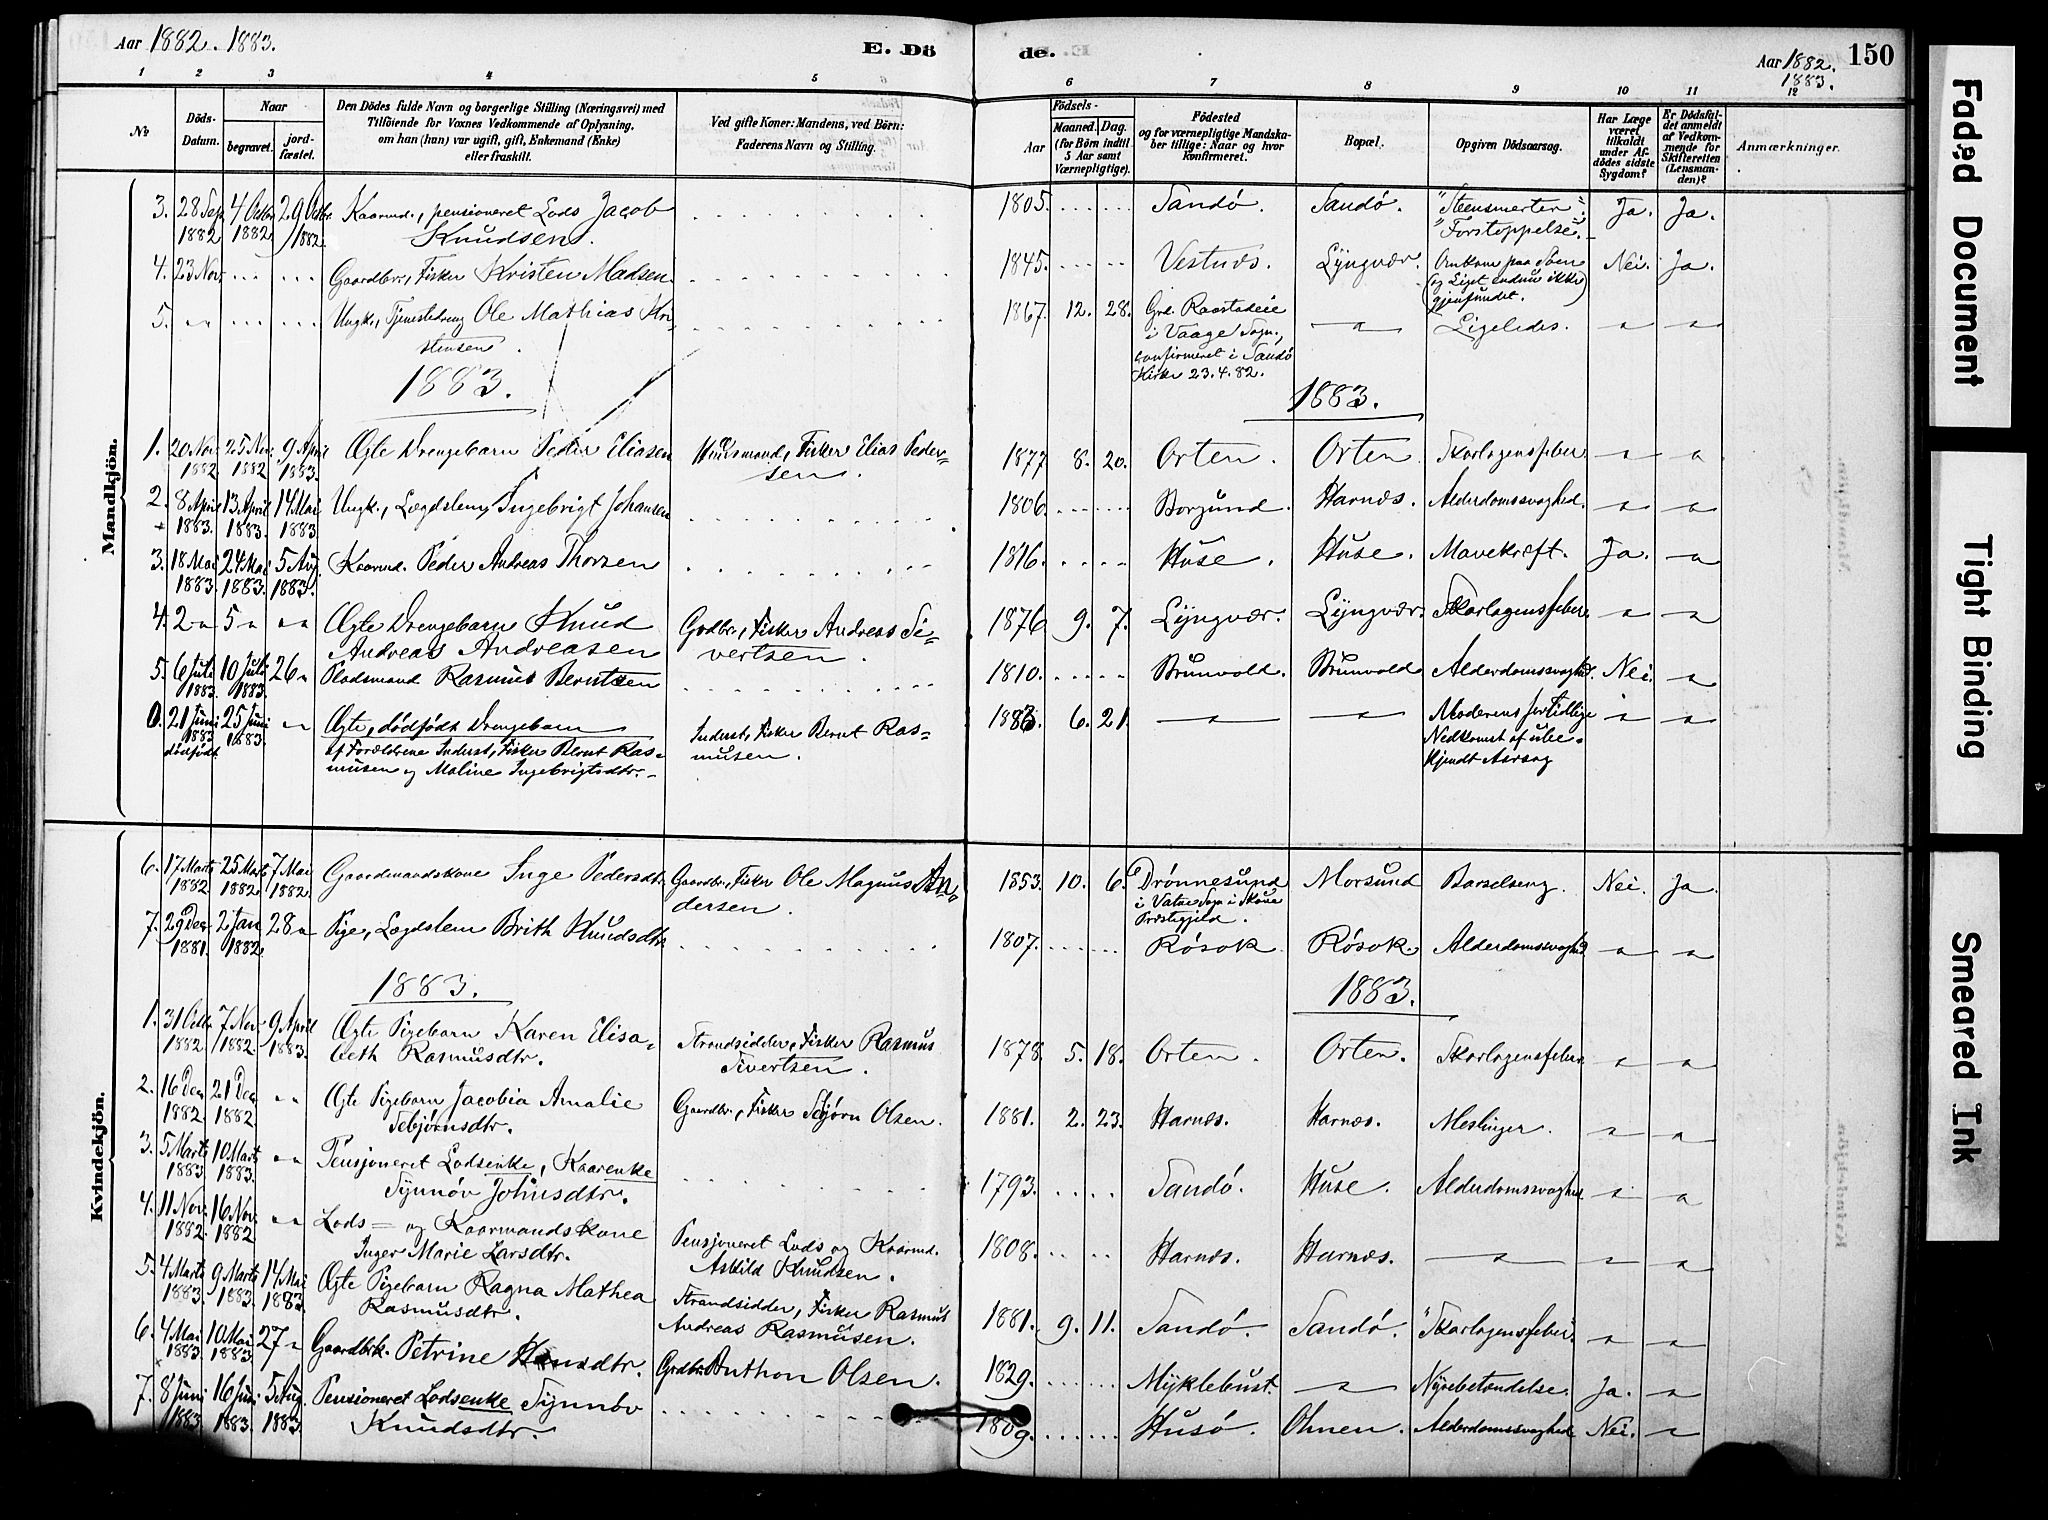 Aar 1882. 1883.
E. Dö
de.
Aar 1882.
1883.
150
1 2 3 4 5 6 7 8 9 10 11 12
No
Döds-
Datum.
Naar
begravet.
jord-
fæstet.
Den Dödes fulde Navn og borgerlige Stilling (Næringsvei) med
Tilföiende for Voxnes Vedkommende af Oplysning,
om han (hun) var ugift, gift, Enkemand (Enke)
eller fraskilt.
Ved gifte Koner: Mandens, ved Börn:
Faderens Navn og Stilling.
Födsels-
Aar
Maaned.
Dag.
(for Börn indtil
5 Aar samt
Værnepligtige).
Födested
og for værnepligtige Mandska-
ber tillige: Naar og hvor
konfirmeret.
Bopæl.
Opgiven Dödsaarsag.
Har Læge
været
tilkaldt
under Af-
dödes sidste
Sygdom?
Er Dödsfal-
det anmeldt
af Vedkom-
mende for
Skifteretten
(Lensman-
den)?
Anmærkninger.
Mandkjön.
3. 28 Sep 1882 4 Octbr 1882 29 Octbr 1882. Kaarmd., pensioneret Lods Jacob
Knudsen. 1805. Sandö. Sandö. "Steensmerter". "Forstoppelse". Ja. Ja.
4. 23 Nov. Gaardbr., Fisker Kristen Madsen. 1845. Vestnæs. Lyngvær. Omkom paa Söen
(og Liget endnu ikke
gjenfundet. Nei. Ja.
5. " Ungk., Tjenestedreng Ole Mathias Kri-
stensen. 1867. 12. 28. Grd. Raastadeie
i Vaage Sogn,
confirmeret i Sandö
Kirke 23.4.82. " Ligeledes. " "
1883.
1883.
1. 20 Nov. 1882 25 Nov. 1882 9 April 1883. Ægte Drengebarn Peder Eliasen Huusmand, Fisker Elias Peder-
sen. 1877 8. 20. Orten. Orten. Skarlagensfeber " "
2. 8 April 1883. 13 April 1883. 14 Mai 1883 Ungk., Lægdslem, Ingebrigt Johansen 1806. Borgund. Harnæs. Alderdomssvaghed. " "
3. 18 Mai 1883. 24 Mai 1883. 5 Aug. 1883. Kaarmd. Peder Andreas Thorsen 1816. Huse. Huse. Mavekræft. Ja. "
4. 2 " 5 " " Ægte Drengebarn Knud
Andreas Andreasen Grdbr., Fisker Andreas Si-
vertsen. 1876 9. 7. Lyngvær. Lyngvær. Skarlagensfeber " "
5. 6 Juli 1883. 10 Juli 1883. 26 " Pladsmand Rasmus Berntsen 1810. Brunvold. Brunvold Alderdomssvaghed. Nei. "
0. 21 Juni 1883 dödfödt 25 Juni 1883. " Ægte, dödfödt Drengebarn
af Forældrene Inderst, Fisker Bernt Ras-
musen og Maline Ingebrigtsdtr. Inderst, Fisker Bernt Ras-
musen. 1883. 6. 21. " " Moderens fortidlige
Nedkomst af ube-
kjendt Aarsag " "
Kvindekjön.
6. 17 Marts 1882 25 Marts 1882 7 Mai 1882. Gaardmandskone Inge Pedersdtr. Gaardbr., Fisker Ole Magnus An-
dersen. 1853. 10. 6. Drönnesund
i Vatne Sogn i Skoue
Præstegjeld. Morsund Barselseng. Nei. Ja.
7. 29 Dec. 1881. 2 Jan 1882. 28 " Pige, Lægdslem Brith Knudsdtr. 1807. Rösok. Rösok. Alderdomssvaghed " "
1883.
1883.
1. 31 Octbr. 1882. 7 Nov. 1882. 9 April 1883. Ægte Pigebarn Karen Elisa-
beth Rasmusdtr. Strandsidder, Fisker Rasmus
Sivertsen. 1878. 5. 18. Orten. Orten. Skarlagensfeber " "
2. 16 Dec 1882. 21 Dec 1882. " Ægte Pigebarn Jacobia Amalie
Tebjörnsdtr. Gaardbr., Fisker Tebjörn Olsen. 1881. 2. 23. Harnæs. Harnæs. Meslinger. " "
3. 5 Marts 1883 10 Marts 1883. " Pensjoneret Lodsenke, Kaarenke
Synnöv Johnsdtr. 1793. Sandö. Huse. Alderdomssvaghed " "
4. 11 Nov. 1882. 16 Nov. 1882 " Lods= og Kaarmandskone
Inger Marie Larsdtr. Pensjoneret Lods og Kaarmd.
Askild Knudsen. 1808. Harnæs. Harnæs. " " "
5. 4 Marts 1883. 9 Marts 1883. 14 Mai 1883. Ægte Pigebarn Ragna Mathea
Rasmusdtr. Strandsidder, Fisker Rasmus
Andreas Rasmusen. 1881. 9. 11. Sandö. Sandö. "Skarlagensfeber". " "
6. 4 Mai 1883. 10 Mai 1883 27 " Gaardbrk. Petrine Hansdtr. Grdbr. Anthon Olsen. 1829. Myklebust. " Nyrebetændelse. Ja. "
7. 8 Juni 1883 16 Juni 1883. 5 Aug. 1883. Pensioneret Lodsenke Synnöv
Knudsdtr. 1809. Husö. Ohnen. Alderdomssvaghed Nei. "
Faded Document
Tight Binding
Smeared Ink